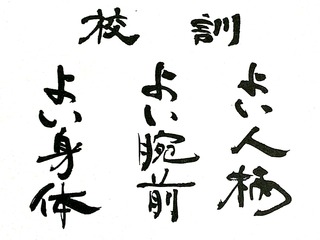 校訓
よい人柄
よい腕前
よい身体